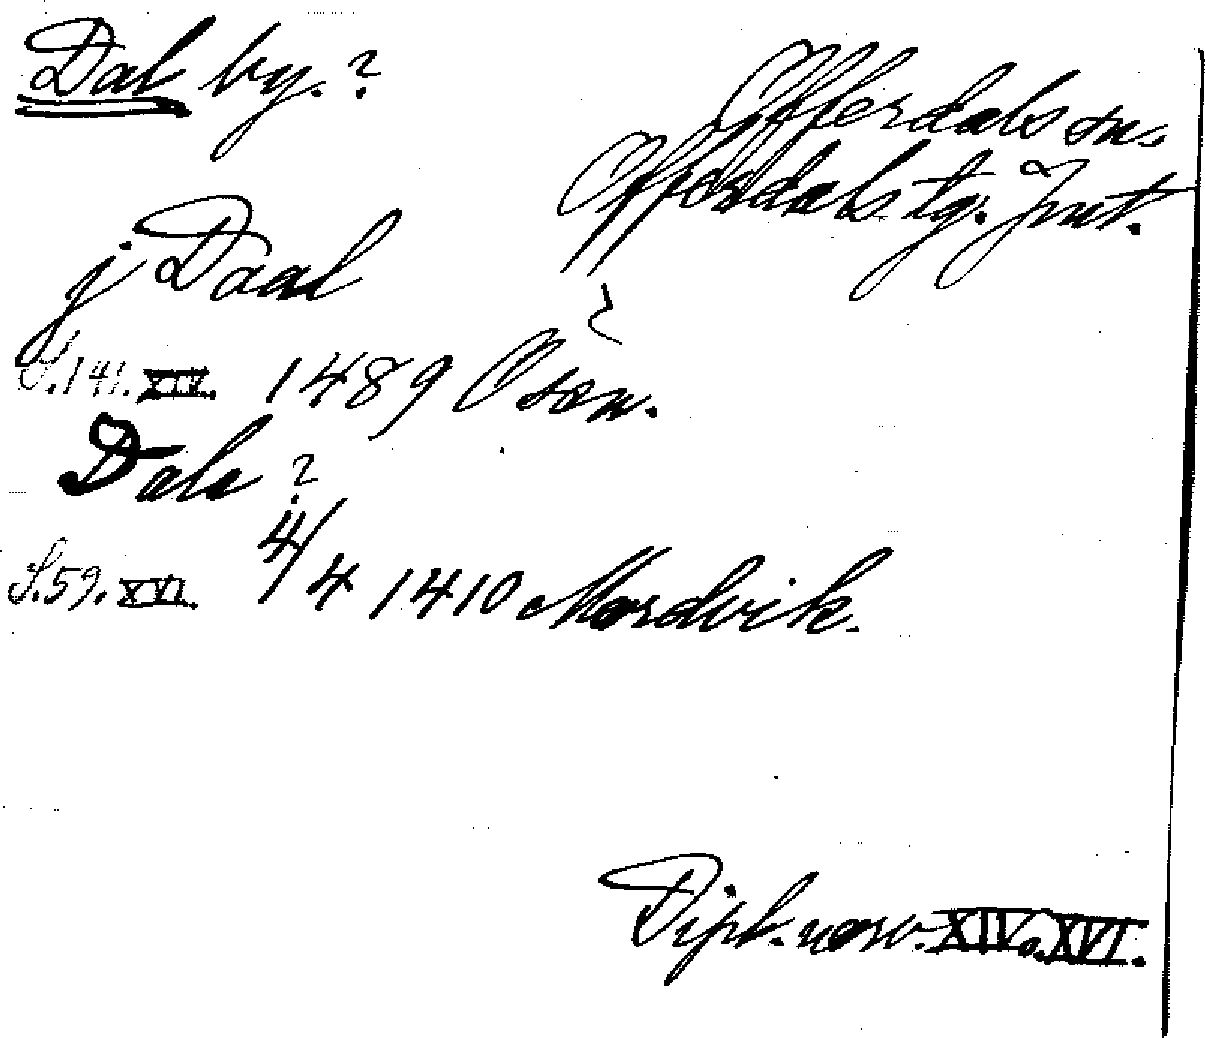 Dal by.?
Offerdals sn.
Offerdals tg. Jmt.
j Daal
S.141. XIV. 1489 Osen.
Dale ?
S.59. XVI. 4/4 1410 Mordvik.
Dipl. norv. XIV o. XVI.